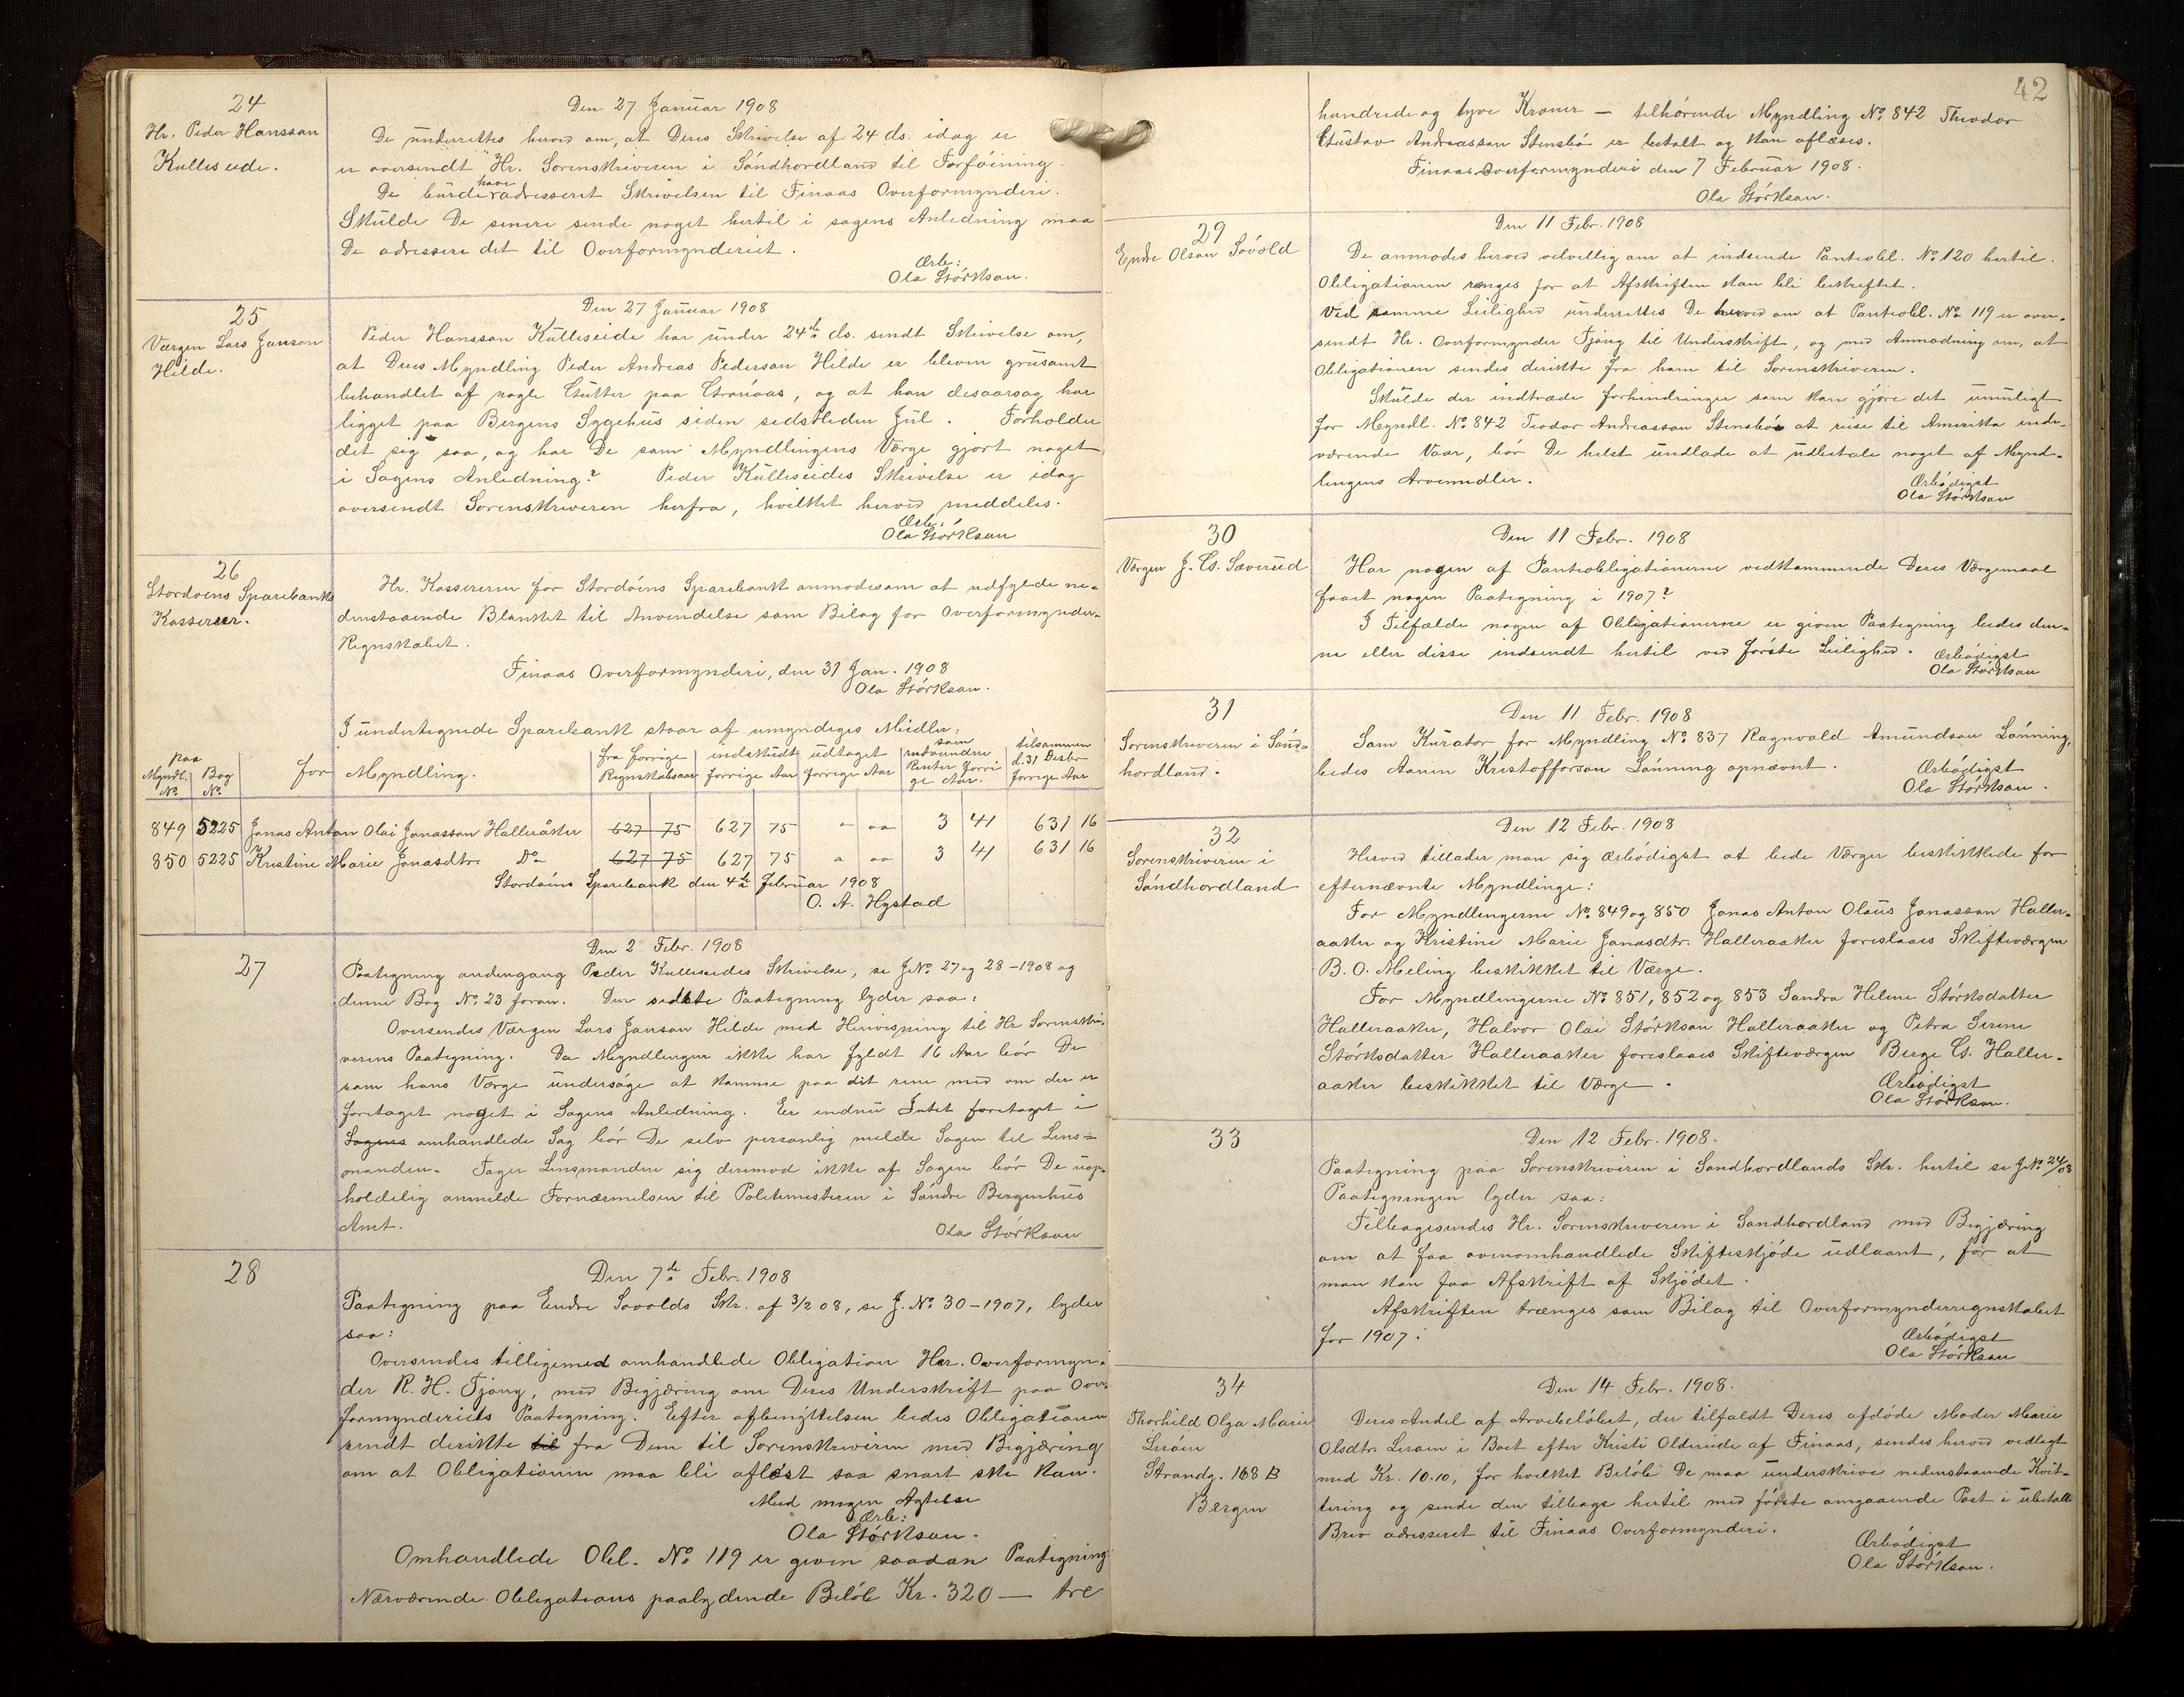 24
Hr. Peder Hansson
Kulleseide.
Den 27 Januar 1908
De underrettes herved om, at Deres Skrivelse af 24 ds. idag er
er oversendt Hr. Sorenskriveren i Söndhordland til Forföining.
De burde have adresseret Skrivelsen til Finaas Overformynderi.
Skulde De senere sende noget hertil i sagens Anledning maa
De adressere det til Overformynderiet.
Ærb:
Ola Störkson.
25
Værgen Lars Janson
Hilde.
Den 27 Januar 1908
Peder Hansson Kulleseide har under 24de ds. sendt Skrivelse om,
at Deres Myndling Peder Andreas Pederson Hilde er bleven grusomt
behandlet af nogle Gutter paa Gronöas, og at han desaarsag har
ligget paa Bergens Sygehus siden sidstleden Jul. Forholder
det sig saa, og har De som Myndlingens Værge gjort noget
i Sagens Anledning? Peder Kulleseides Skrivelse er idag
oversendt Sorenskriveren herfra, hvilket herved meddeles.
Ærb.
Ola Störkson
26
Stordöens Sparebanks
Kasserer.
Hr. Kassereren for Stordöens Sparebank anmodes om at udfylde ne-
denstaaende Blanket til Anvendelse som Bilag for Overformynder-
Regnskabet.
Finaas Overformynderi, den 31 Jan. 1908
Ola Störkson.
I undertegnede Sparebank staar af umyndiges Midler:
paa
Myndl. No. Bog No. for Myndling. fra forrige Regnskabsaar indskudt forrige Aar udtaget forrige Aar som indvundne Renter forrige Aar. tilsammen d. 31 Desbr forrige Aar
849 5225 Jonas Anton Olai Jonasson Halleråker 627 75 627 75 " " 3 41 631 16
850 5225 Kristine Marie Jonasdtr. Do 627 75 627 75 " " 3 41 631 16
Stordöens Sparebank den 4de Februar 1908
O. A. Hystad
27
Den 2 Febr. 1908
Paategning andengang Peder Kulleseides Skrivelse, se J.No. 27 og 28-1908 og
denne Bog No. 23 foran. Den sidste Paategning lyder saa:
Oversendes Værgen Lars Janson Hilde med Henvisning til Hr Sorenskri-
verens Paategning. Da Myndlingen ikke har fyldt 16 Aar bör De
som hans Værge undersöge at komme paa dit rene med om der er
foretaget noget i Sagens Anledning. Er endnu Intet foretaget i
Sagens omhandlede Sag bör De selv personlig melde Sagen til Lens-
manden. Tager Lensmanden sig derimod ikke af Sagen bör De uop-
holdelig anmelde Fornærmelsen til Politimesteren i Söndre Bergenhus
Amt.
Ola Störkson
28
Den 7de Febr. 1908
Paategning paa Endre Sovolds Skr. af 3/2 08, se J. No. 30-1907, lyder
saa:
Oversendes tilligemed omhandlede Obligation Hr. Overformyn-
der R. H. Tjong, med Begjæring om Deres Underskrift paa Over-
formynderiets Paategning. Efter afbenyttelsen bedes Obligationen
sendt direkte til fra Dem til Sorenskriveren med Begjæring
om at Obligationen maa bli aflöst saa snart ske kan.
Med megen Agtelse
Ærb:
Ola Störkson.
Omhandlede Obl. No. 119 er given saadan Paategning:
Nærværende Obligations paalydende Belöb Kr. 320 — tre
42
hundrede og tyve Kroner — tilhörende Myndling No. 842 Theodor
Gustav Andreasson Stensbö er betalt og kan aflæses.
Finaas Overformynderi den 7 Februar 1908.
Ola Störkson.
29
Endre Olson Sövold
Den 11 Febr. 1908
De anmodes herved velvillig om at indsende Panteobl. No. 120 hertil.
Obligationen trænges for at Afskriften kan bli bekræftet.
Ved samme Leilighed underrettes De herved om at Panteobl. No. 119 er over-
sendt Hr. Overformynder Tjong til Underskrift, og med Anmodning om, at
Obligationen sendes direkte fra ham til Sorenskriveren.
Skulde der indtræde forhindringer som kan gjöre det umuligt
for Myndl. No. 842 Teodor Andreasson Stensbö at reise til Amerika inde-
værende Vaar, bör De helst undlade at udbetale noget af Mynd-
lingens Arvemidler.
Ærbödigst
Ola Störkson
30
Værgen J. G. Sæverud
Den 11 Febr. 1908
Har nogen af Panteobligationerne vedkommende Deres Værgemaal
faaet nogen Paategning i 1907?
I Tilfælde nogen af Obligationerne er given Paategning bedes den-
ne eller disse indsendt hertil ved förste Leilighed.
Ærbödigst
Ola Störkson
31
Sorenskriveren i Sönd-
hordland.
Den 11 Febr. 1908
Som Kurator for Myndling No. 837 Ragnvald Amundson Lönning,
bedes Aanen Kristofforson Lönning opnævnt.
Ærbödigst
Ola Störkson.
32
Sorenskriveren i
Söndhordland
Den 12 Febr. 1908
Herved tillader man sig ærbödigst at bede Værger beskikkede for
efternævnte Myndlinge:
For Myndlingerne No. 849 og 850 Jonas Anton Olaus Jonasson Haller-
aaker og Kristine Marie Jonasdtr. Halleraaker foreslaaes Skifteværgen
B. O. Meling beskikket til Værge.
For Myndlingerne No. 851, 852 og 853 Sandra Helene Störksdatter
Halleraaker, Halvor Olai Störkson Halleraaker og Petra Serine
Störksdatter Halleraaker foreslaaes Skifteværgen Berge G. Haller-
aaker beskikket til Værge.
Ærbödigst
Ola Störkson.
33
Den 12 Febr. 1908.
Paategning paa Sorenskriveren i Söndhordlands Skr. hertil se J.No. 24/08
Paategningen lyder saa:
Tilbagesendes Hr. Sorenskriveren i Söndhordland med Begjæring
om at faa ovenomhandlede Skifteskjöde udlaant, for at
man kan faa Afskrift af Skjödet.
Afskriften trænges som Bilag til Overformynderregnskabet
for 1907.
Ærbödigst
Ola Störkson
34
Thorhild Olga Marie
Leröen
Strandg. 168 B
Bergen
Den 14 Febr. 1908.
Deres Andel af Arvebelöbet, der tilfaldt Deres afdöde Moder Marie
Olsdtr. Leröen i Boet efter Kristi Ölsdereide af Finaas, sendes herved vedlagt
med Kr. 10.10, for hvilket Belöb De maa underskrive nedenstaaende Kvit-
tering og sende den tilbage hertil med förste omgaaende Post i ubetalt
Brev adresseret til Finaas Overformynderi.
Ærbödigst
Ola Störkson.